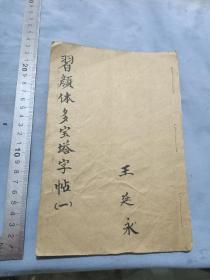 習顔体多宝塔字帖(一)
王延永